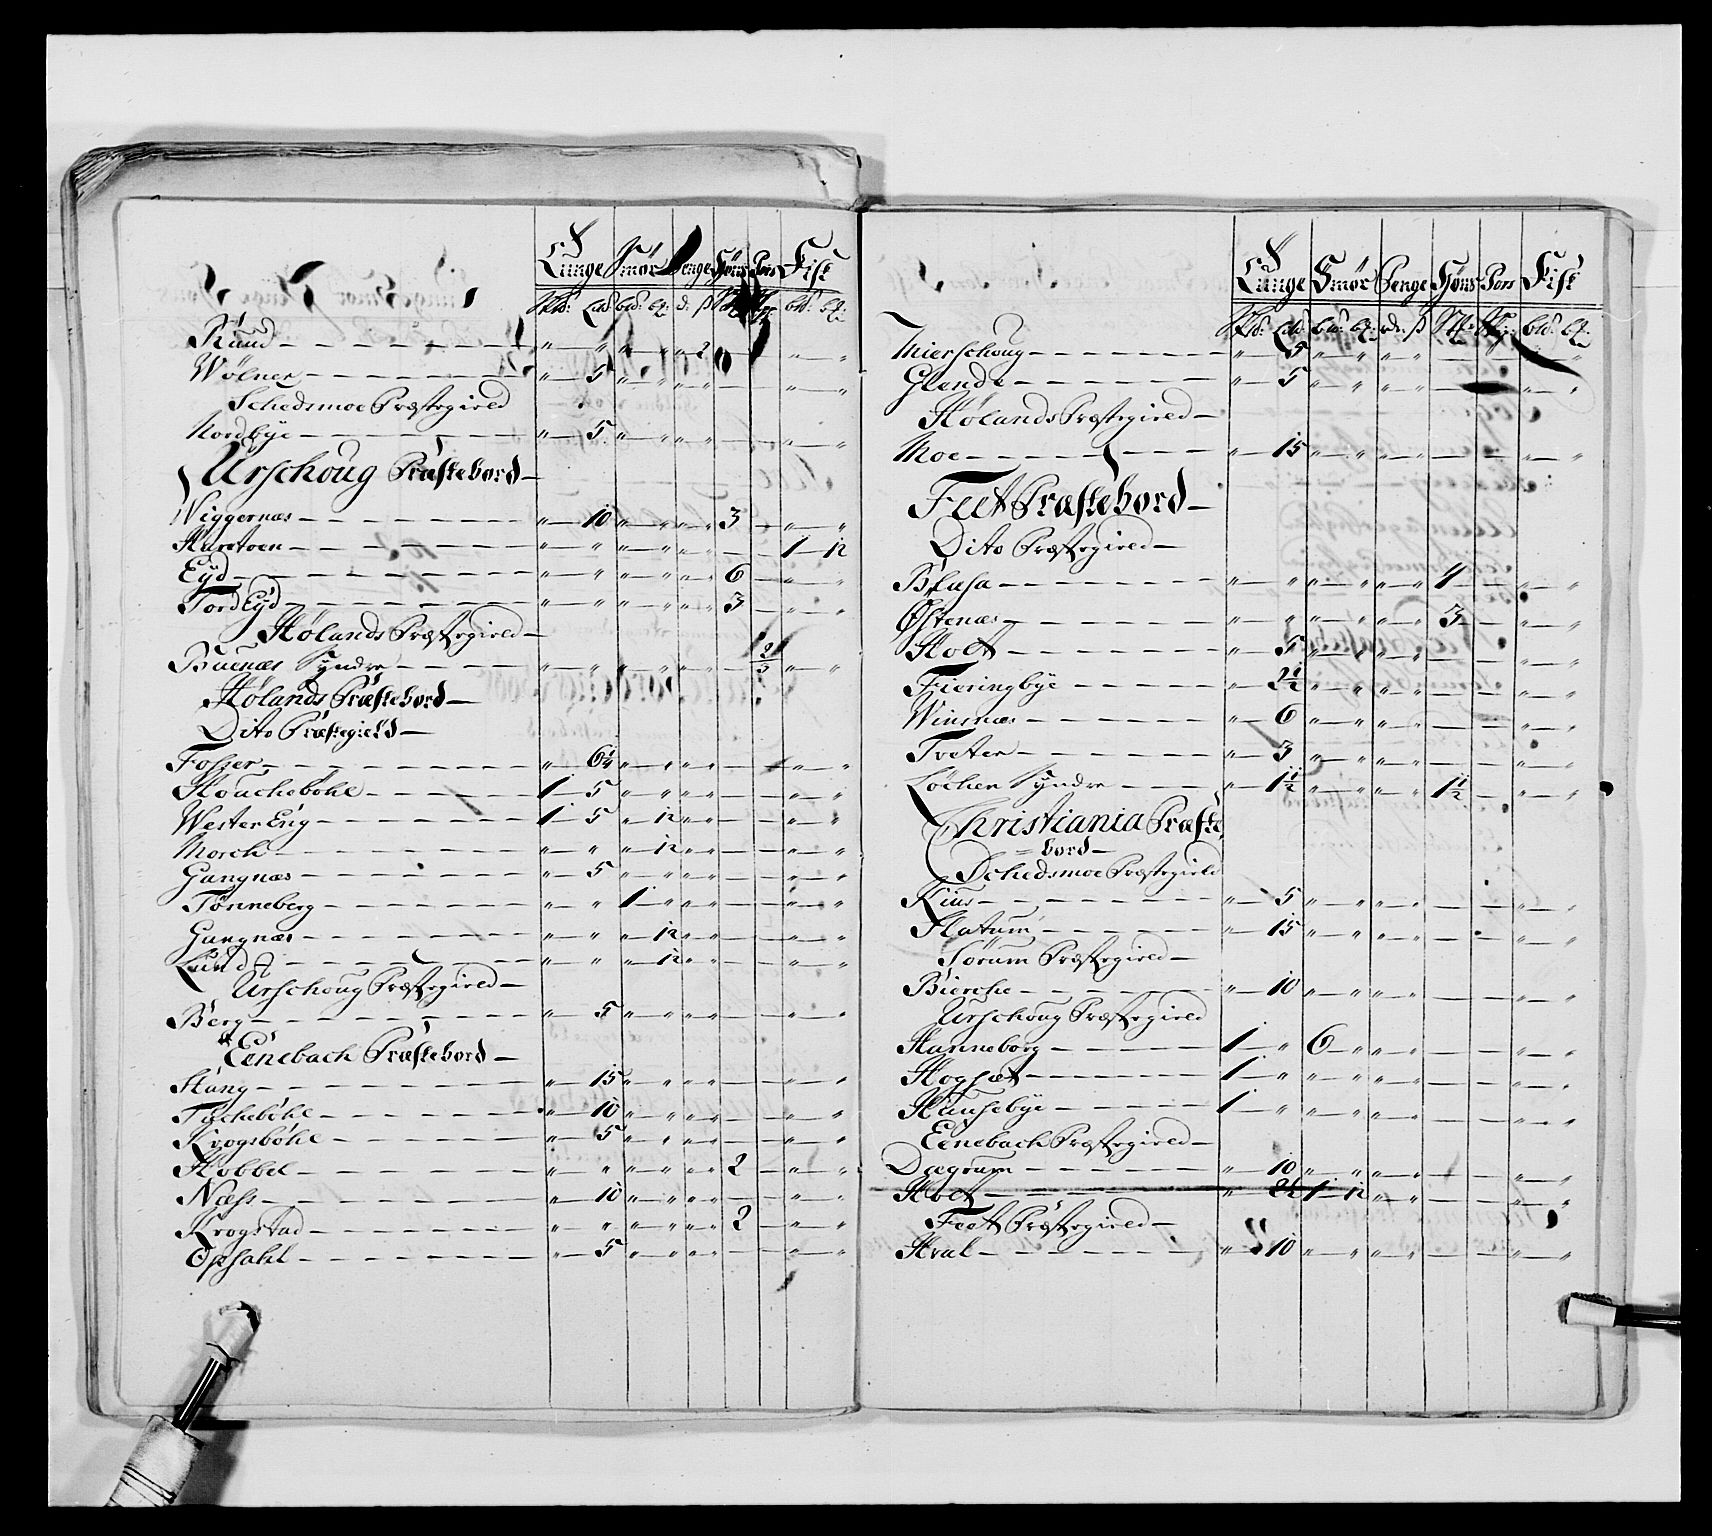 Tunge Smør Penge Høns Fisk
Ruud — „ „ „ „ 2 „ „
Wølner — „ 5 „ „ „ „ — „ „
Schedsmoe Præstegield
Nordbye — „ 5 „ „ „ „ — „ „
Urschoug Præstebord —
Wiggernæs — „ 10 „ „ „ „ 3 — „ „
Haretoen — „ „ „ „ „ „ — — 1 12
Eyd — „ „ „ „ „ „ 6 — „ „
Tord Eyd — „ „ „ „ „ „ 3 — „ „
Hølands Præstegield —
Buenæs Syndre — „ „ „ „ „ „ — 2/3 „ „
Hølands Præstebord —
Dito Præstegield —
Fosser — „ 6 1/4 „ „ „ „ — — „ „
Houchebøhl — 1 5 „ „ „ „ — — „ „
Wester Eng — 1 5 „ 12 „ „ — — „ „
Morch — „ „ „ 12 „ „ — — „ „
Gangnæs — „ 5 „ „ „ „ — — „ „
Tønneberg — „ „ 1 „ „ „ — — „ „
Gangnæs — „ „ „ 12 „ „ — — „ „
Lund — „ „ „ 12 „ „ — — „ „
Urschoug Præstegield —
Berg — „ 5 „ „ „ „ — — „ „
Eenebach Præstebord —
Stang — „ 15 „ „ „ „ — — „ „
Tuchebøhl — „ 10 „ „ „ „ — — „ „
Krogsbøhl — „ 5 „ „ „ „ — — „ „
Hobbel — „ „ „ „ „ „ 2 — „ „
Næss — „ 10 „ „ „ „ — — „ „
Krogstad — „ „ „ „ „ „ 2 — „ „
Opsahl — „ 5 „ „ „ „ — — „ „
Tunge Smør Penge Høns Fisk
Mierschoug — „ 5 „ „ „ „
Glende — „ 5 „ „ „ „ — — „ „
Hølands Præstegield —
Moe — „ 15 „ „ „ „ — — „ „
Feet Præstebord —
Dito Præstegield —
— „ „ „ „ „ „ 4 — „ „
Østenæs — „ „ „ „ „ „ 3 — „ „
Holt — „ 5 „ „ „ „ — — „ „
Fieringbye — „ 2 1/2 „ „ „ „ — — „ „
Winsnæs — „ 6 „ „ „ „ — — „ „
Tveter — „ 3 „ „ „ „ — — „ „
Løchen Syndre — „ 1 1/2 „ „ „ „ 1 1/2 — „ „
Christiania Præste
= bord —
Schedsmoe Præstegield
Riis — „ 5 „ „ „ „ — — „ „
Flatum — „ 15 „ „ „ „ — — „ „
Sørum Præstegield —
Bierche — „ 10 „ „ „ „ — — „ „
Urschoug Præstegield
Hanneborg — 1 „ 6 „ „ „ — — „ „
Hogsæt — 1 „ „ „ „ „ — — „ „
Hunsebye — 1 „ „ „ „ „ — — „ „
Eenebach Præstegield —
Dægrum — „ 10 „ „ „ „ — — „ „
Holt — „ 1 12 „ „ — — „ „
Feet Præstegield —
Hval — „ 10 „ „ „ „ — — „ „